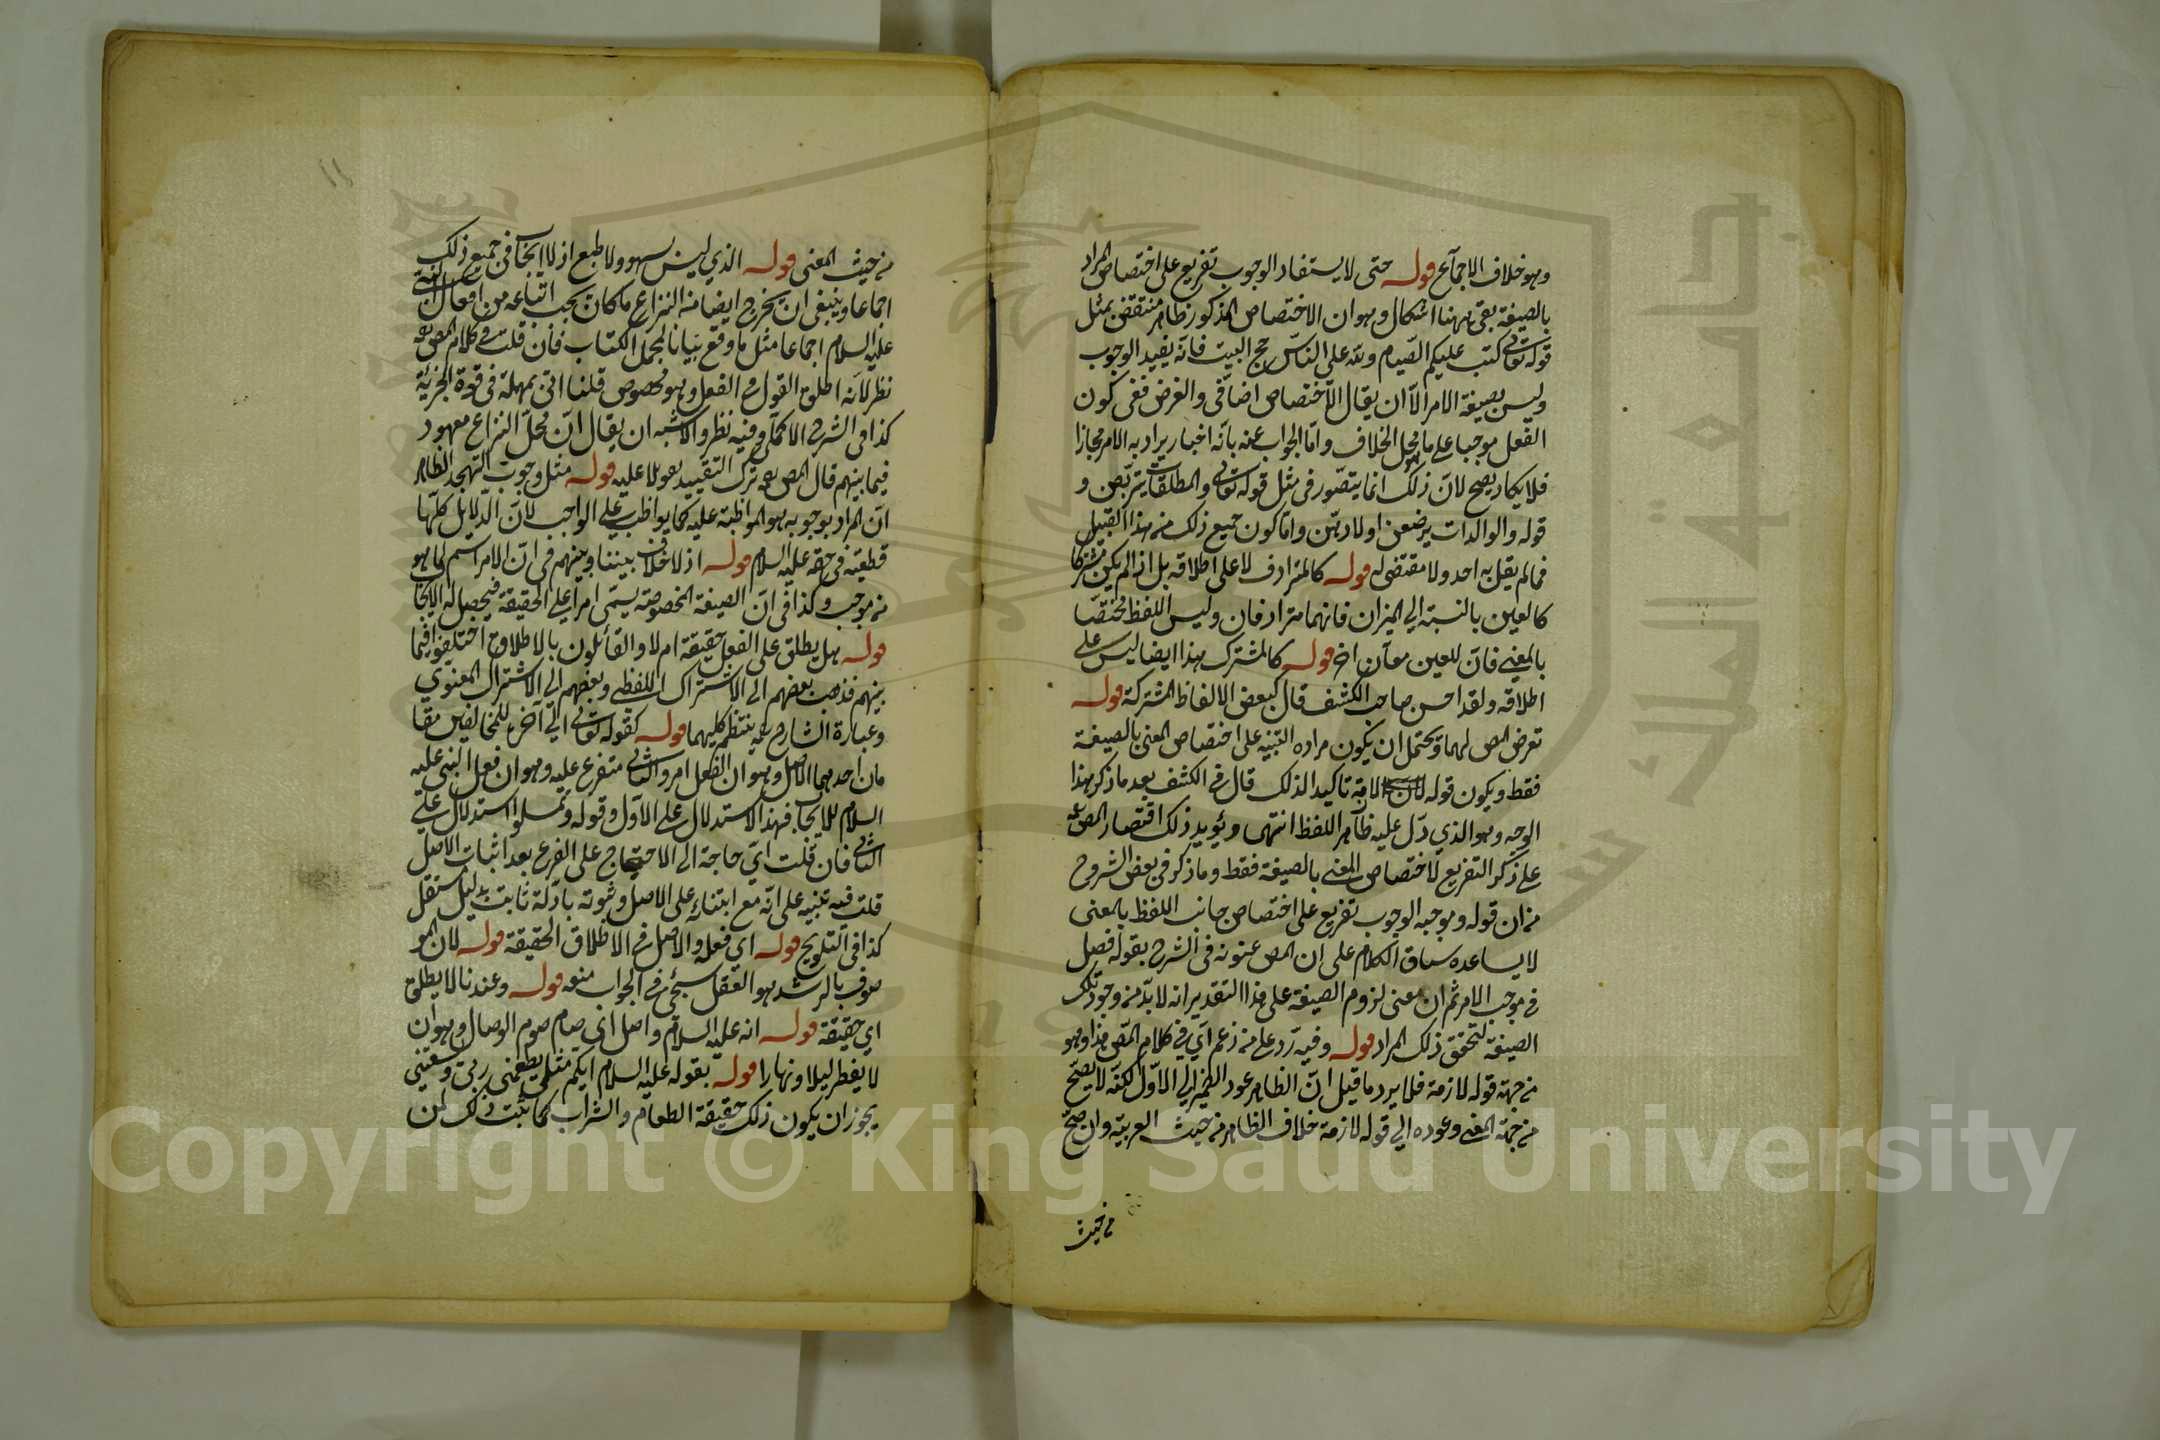 وهو خلاف الاجماع قوله حتى لا يستفاد الوجوب تفريع على اختصاص المراد
بالصيغة بقى ههنا اشكال وهو ان الاختصاص المذكور ظاهر منتقض بمثل
قوله تعالى كتب عليكم الصيام ولله على الناس حج البيت فانه يفيد الوجوب
وليس بصيغة الامر الا ان يقال الاختصاص اضافى والغرض نفى كون
الفعل موجبا على ما هو محل الخلاف واما الجواب عنه بانه اخبار يراد به الامر مجازا
فلا يكاد يصح لان ذلك انما يتصور فى مثل قوله تعالى والمطلقات يتربصن و
قوله والوالدات يرضعن اولادهن واما كون جميع ذلك من هذا القبيل
فمما لم يقل به احد ولا مقتضى له قوله كالمترادف لا على اطلاقه بل اذا لم يكن مشتركا
كالعين بالنسبة الى الميزان فانهما مترادفان وليس اللفظ مختصا
بالمعنى فان للعين معان اخر قوله كالمشترك هذا ايضا ليس على
اطلاقه ولقد احسن صاحب الكشف قال كبعض الالفاظ المشتركة قوله
تعرض المص لهما ويحتمل ان يكون مراده التنبيه على اختصاص المعنى بالصيغة
فقط ويكون قوله لازمة تاكيدا لذلك قال فى الكشف بعد ما ذكر هذا
الوجه وهو الذي دل عليه ظاهر اللفظ انتهى ويؤيد ذلك اقتصار المص
على ذكر التفريع لاختصاص المعنى بالصيغة فقط وما ذكر فى بعض الشروح
من ان قوله وموجبه الوجوب تفريع على اختصاص جانب اللفظ بالمعنى
لا يساعده سياق الكلام على ان المص عنونه فى الشرح بقوله فصل
فى موجب الامر ثم ان معنى لزوم الصيغة على هذا التقدير انه لا بد من وجود تلك
الصيغة لتحقق ذلك المراد قوله وفيه رد على من زعم اي فى كلام المص هذا وهو
من جهة قوله لازمة فلا يرد ما قيل ان الظاهر عود الضمير الى الاول لكنه لا يصح
من جهة المعنى وعوده الى قوله لازمة خلاف الظاهر من حيث العربية وان صح
من حيث
١١
من حيث المعنى قوله الذي ليس بسهو ولا طبع اذ لا ايجاب فى جميع ذلك
اجماعا وينبغى ان يخرج ايضا منه النزاع ما كان يجب اتباعه من افعال النبى
عليه السلام اجماعا مثل ما وقع بيانا لمجمل الكتاب فان قلت فى كلام المص
نظر لانه اطلق القول فى الفعل وهو مخصوص قلنا اتى بمهملة فى قوة الجزئية
كذا فى الشرح الاكملى وفيه نظر والاشبه ان يقال ان محل النزاع معهود
فيما بينهم قال المص ترك التقييد تعويلا عليه قوله مثل وجوب التهجد الظاهر
ان المراد بوجوبه هو المواظبة عليه كما يواظب على الواجب لان الدلايل كلها
قطعية فى حقه عليه السلام قوله اذ لا خلاف بيننا وبينهم فى ان الامر اسم لما هو
من موجب وكذا فى ان الصيغة المخصوصة يسمى امرا على الحقيقة فيحصل له الايجاب
قوله هل يطلق على الفعل حقيقة ام لا والقائلون بالاطلاق اختلفوا فيما
بينهم فذهب بعضهم الى الاشتراك اللفظى وبعضهم الى الاشتراك المعنوي
وعبارة الشارح ينتظم كليهما قوله كقوله تعالى الى آخره للمخالفين مقا
مان احدهما الاصل وهو ان الفعل امر والثانى متفرع عليه وهو ان فعل النبى عليه
السلام للايجاب فهذا الاستدلال على الاول وقوله وتمسلوا استدلال على
الثانى فان قلت اي حاجة الى الاحتجاج على الفرع بعد اثبات الاصل
قلت فيه تنبيه على انه مع ابتنائه على الاصل وثبوته بادلته ثابت بدليل مستقل
كذا فى التلويح قوله اي فعله والاصل فى الاطلاق الحقيقة قوله لان المو
صوف بالرشد هو العقل سيجئ فى الجواب منعه قوله وعندنا لا يطلق
اي حقيقة قوله انه عليه السلام واصل اي صام صوم الوصال وهو ان
لا يفطر ليلا ونهارا قوله بقوله عليه السلام ايكم مثلى يطعمنى ربى ويسقينى
يجوز ان يكون ذلك حقيقة الطعام والشراب كما يثبت ذلك لمن
جامعة الملك سعود
Copyright © King Saud University